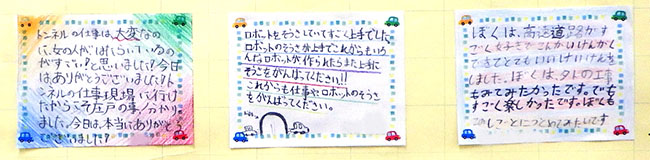 トンネルの仕事は、大変なの
に、女の人がはたらいているの
がすごいと思いました!今日
はありがとうございました!ト
ンネルの仕事現場に行けた
からこそ
ました。今日は、本当にありがとうご
ざいました!
ロボットをそうさしていてすごく上手でした。
ロボットのそうさが上手でこれからもいろ
んなロボットが作られたらまた上手に
そうさをがんばってください!!
これからも仕事やロボットのそうさ
をがんばってください。
ぼくは、高速道路がす
ごく好きでこんかいけんがく
できてとてもいいけいけんを
しました。ぼくは、夕トの工事
もみてみたかったです。でも
すごく楽しかったです。ぼくも
このしごとにつとめてみたいです